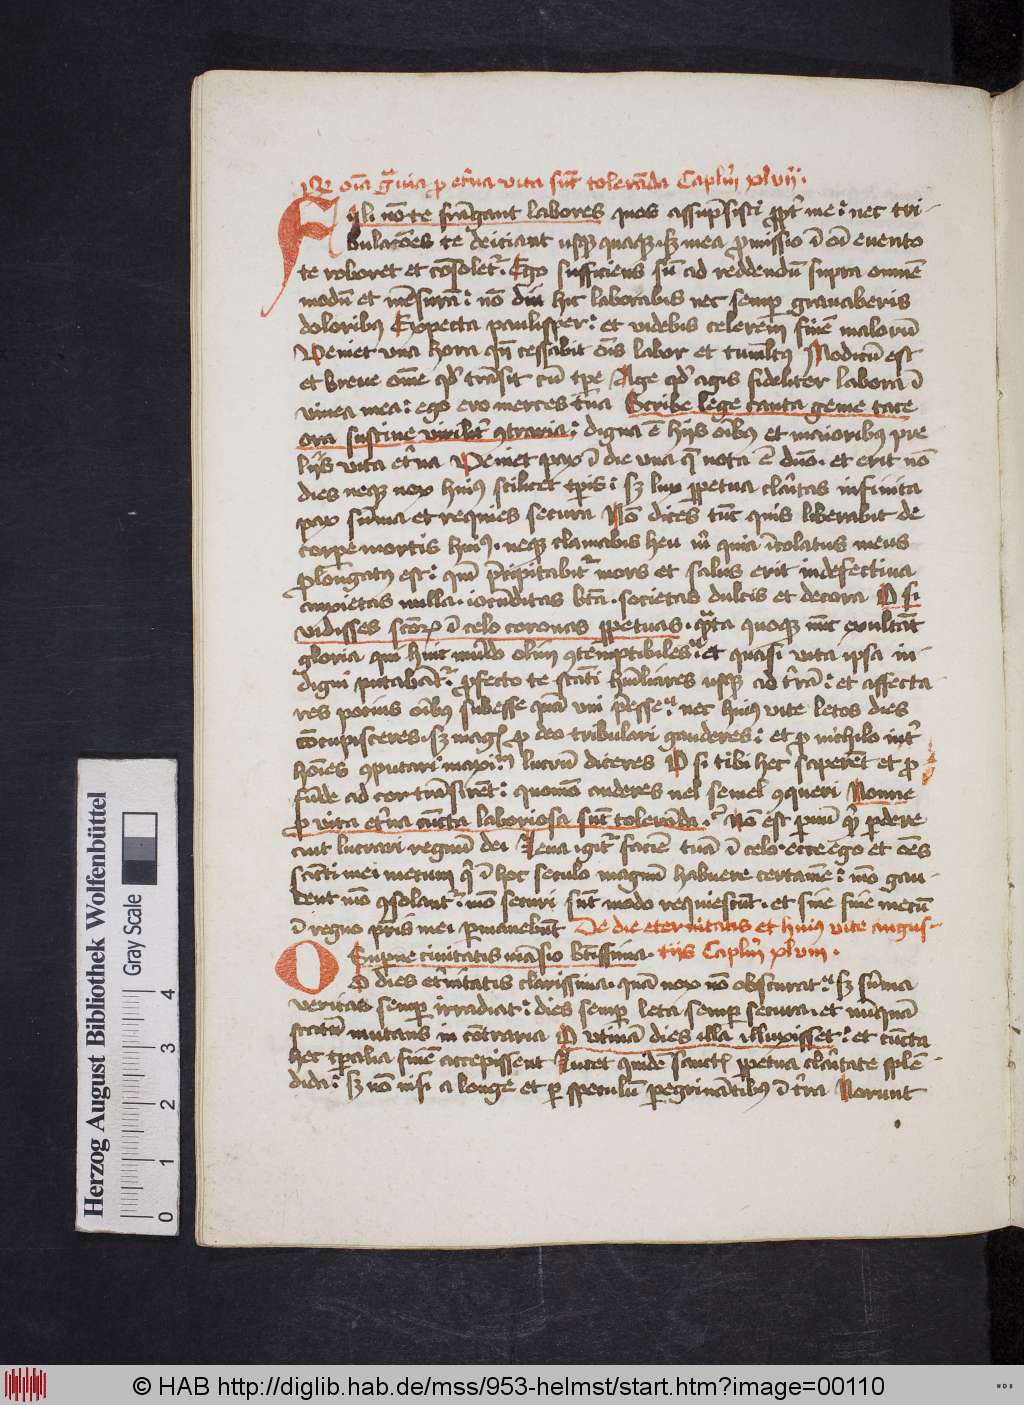 Qd oīa gͣuia ꝓ etꝰna vita sūt tolerāda Caplm̄ xlvij.
Fili nō te frāgant labores quos assūpsisti ꝓptꝰ me: nec tri-
bulacōes te deiciant usqꝫ quaqꝫ. sꝫ mea ꝓmissio ī oī euento
te roboret et cōsoletꝰ. Ego sufficiens sū ad reddendū supra omnē
modū et mēsurā: nō diu hic laborabis nec semꝑ grauaberis
doloribꝰ Expecta paulisper: et videbis celerem finē malorū
Veniet una hora qn̄ cessabit oīs labor et tumltꝰ Modicū est
et breue ome qd' trāsit cū tpe Age qd' agis fideliter labora ī
vinea mea: ego ero merces tua Scribe lege canta geme tace
ora sustine virilitꝰ ꝯtraria: digna ē hijs oībꝰ et maioribꝰ pre
lijs vita etꝰna Veniet pax ī die una q̄ nota ē dn̄o. et erit nō
dies neqꝫ nox huiꝰ scilicet tꝑis: sꝫ lux ꝑpetua claritas infinita
pax firma et requies secura Nō dices tūc quis liberabit de
corpe mortis huiꝰ. neqꝫ clamabis heu m̄ quia īcolatus meus
ꝓlongatꝰ est: qm̄ p̄cipitabitꝰ mors et salus erit indefectiua
anxietas nulla. iocūditas btā. societas dulcis et decora O si
vidisses scōꝝ ī celo coronas ꝑpetuas. qͣnta quoqꝫ nūc exultāt
gloria qui huic mūdo olim ꝯtemptibiles: et quasi vita ipsa in-
digni putabātꝰ: ꝓfecto te statī hūiliares usqꝫ ad tꝰrā: et affecta-
res potius oībꝰ subesse quā uni p̄esse: nec huiꝰ vite letos dies
cōcupisceres. sꝫ magꝭ ꝓ deo tribulari gauderes: et ꝓ nichilo intꝰ
hoīes ꝯputari maxīm̄ lucrū diceres O si tibi hec saperēt et ꝓ-
fūde ad cor trāsirēt: quomō auderes uel semel ꝯqueri Nonne
ꝓ vita etꝰna cūcta laboriosa sūt tolerāda. Nō est paruū qd' perdere
aut lucrari regnū dei Leua igitꝰ faciē tuā ī celo. ecce ego et oēs
scāti mei mecum qͥ ī hoc seculo magnū habuere certamē: mō gau-
dent mō ꝯsolantꝰ: mō securi sūt modo requiescūt. et sine fine mecū
ī regno pr̄is mei ꝑmanebūt De die eternitatis et huiꝰ vite angus-
tijs Caplm̄ xlviij.
O Supne ciuitatis māsio btissima.
O dies etꝰnitatis clarissima. quā nox nō obscurat: sꝫ sūma
veritas semꝑ irradiat: dies semꝑ leta semꝑ secura. et nūquā
statū mutans in cōtraria O utinā dies illa illuxisset: et cūcta
hec tꝑalia finē accepissent Lucet quidē sanctꝭ ꝑpetua claritate splē-
dida: sꝫ nō nisi a longe et ꝑ speculū ꝑegrinātibꝰ ī tꝰra Norunt
Herzog August Bibliothek Wolfenbüttel
Gray Scale
0 1 2 3 4
© HAB http://diglib.hab.de/mss/953-helmst/start.htm?image=00110